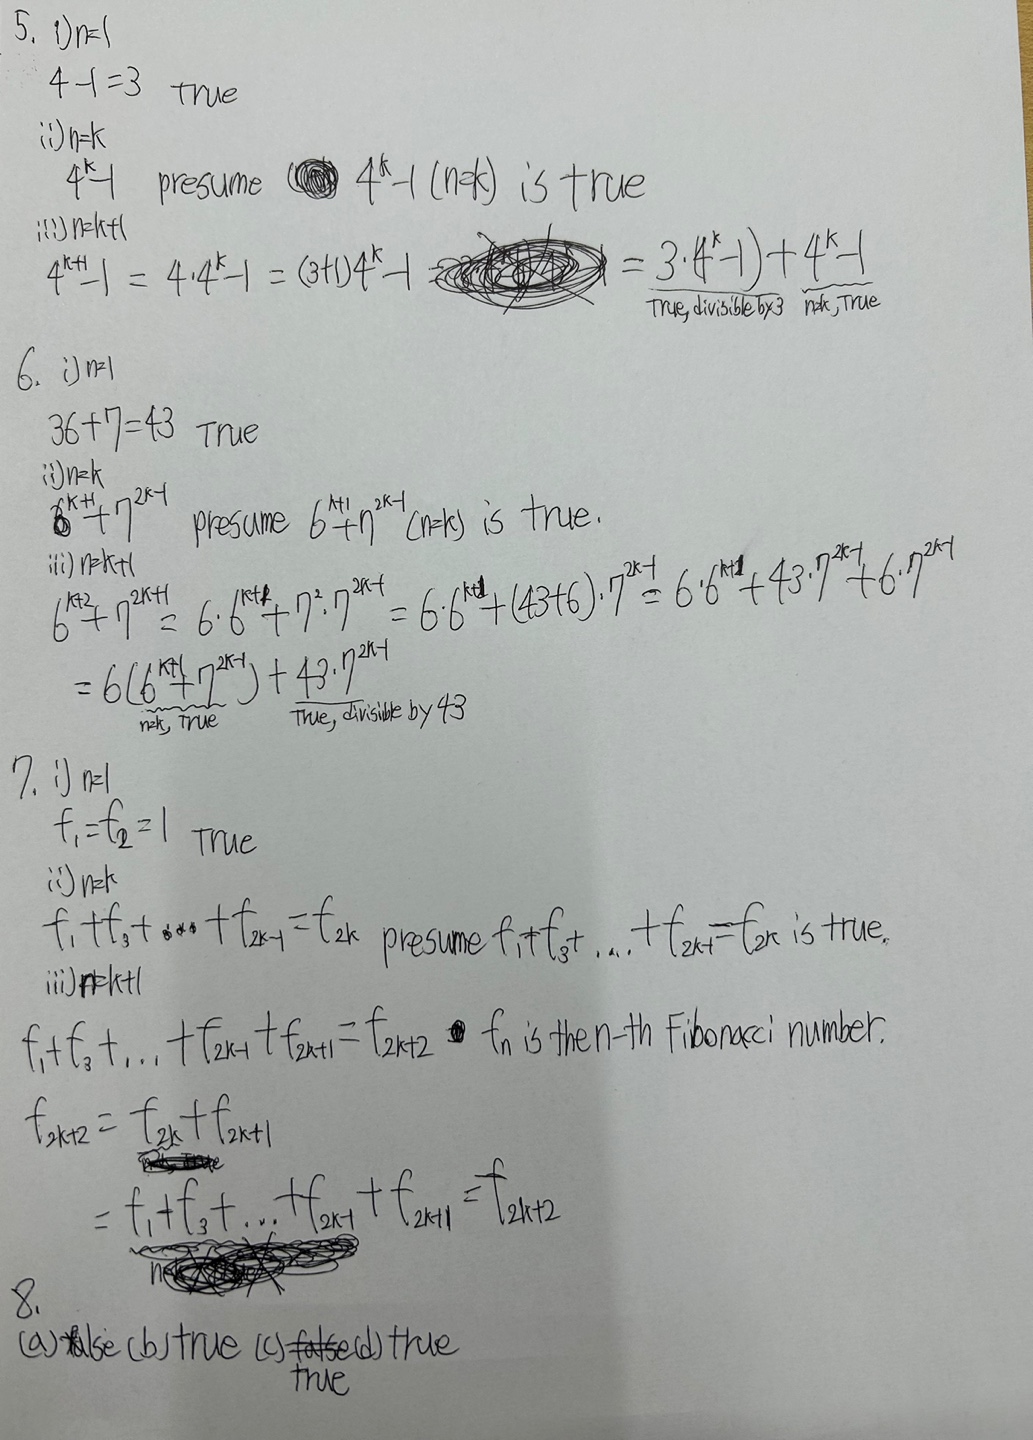 5. i) n=1
4-1=3 True
ii) n=k
4^k-1 presume 4^k-1 (n=k) is true
iii) n=k+1
4^{k+1}-1 = 4·4^k-1 = (3+1)4^k-1 = 3·4^k-1)+4^k-1
True, divisible by 3 n=k, True
6. i) n=1
36+7=43 True
ii) n=k
6^{k+1}+7^{2k-1} presume 6^{k+1}+7^{2k-1} (n=k) is true.
iii) n=k+1
6^{k+2}+7^{2k+1} = 6·6^{k+1}+7^2·7^{2k-1} = 6·6^{k+1}+(43+6)·7^{2k-1} = 6·6^{k+1}+43·7^{2k-1}+6·7^{2k-1}
= 6(6^{k+1}+7^{2k-1})+43·7^{2k-1}
n=k, True True, divisible by 43
7. i) n=1
f_1=f_2=1 True
ii) n=k
f_1+f_3+...+f_{2k-1}=f_{2k} presume f_1+f_3+...+f_{2k-1}=f_{2k} is true.
iii) n=k+1
f_1+f_3+...+f_{2k-1}+f_{2k+1}=f_{2k+2} f_n is the n-th Fibonacci number.
f_{2k+2} = f_{2k}+f_{2k+1}
= f_1+f_3+...+f_{2k-1}+f_{2k+1}=f_{2k+2}
8.
(a) false (b) true (c) false (d) true
true